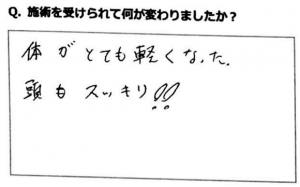 Q. 施術を受けられて何が変わりましたか？
体がとても軽くなった.
頭もスッキリ!!